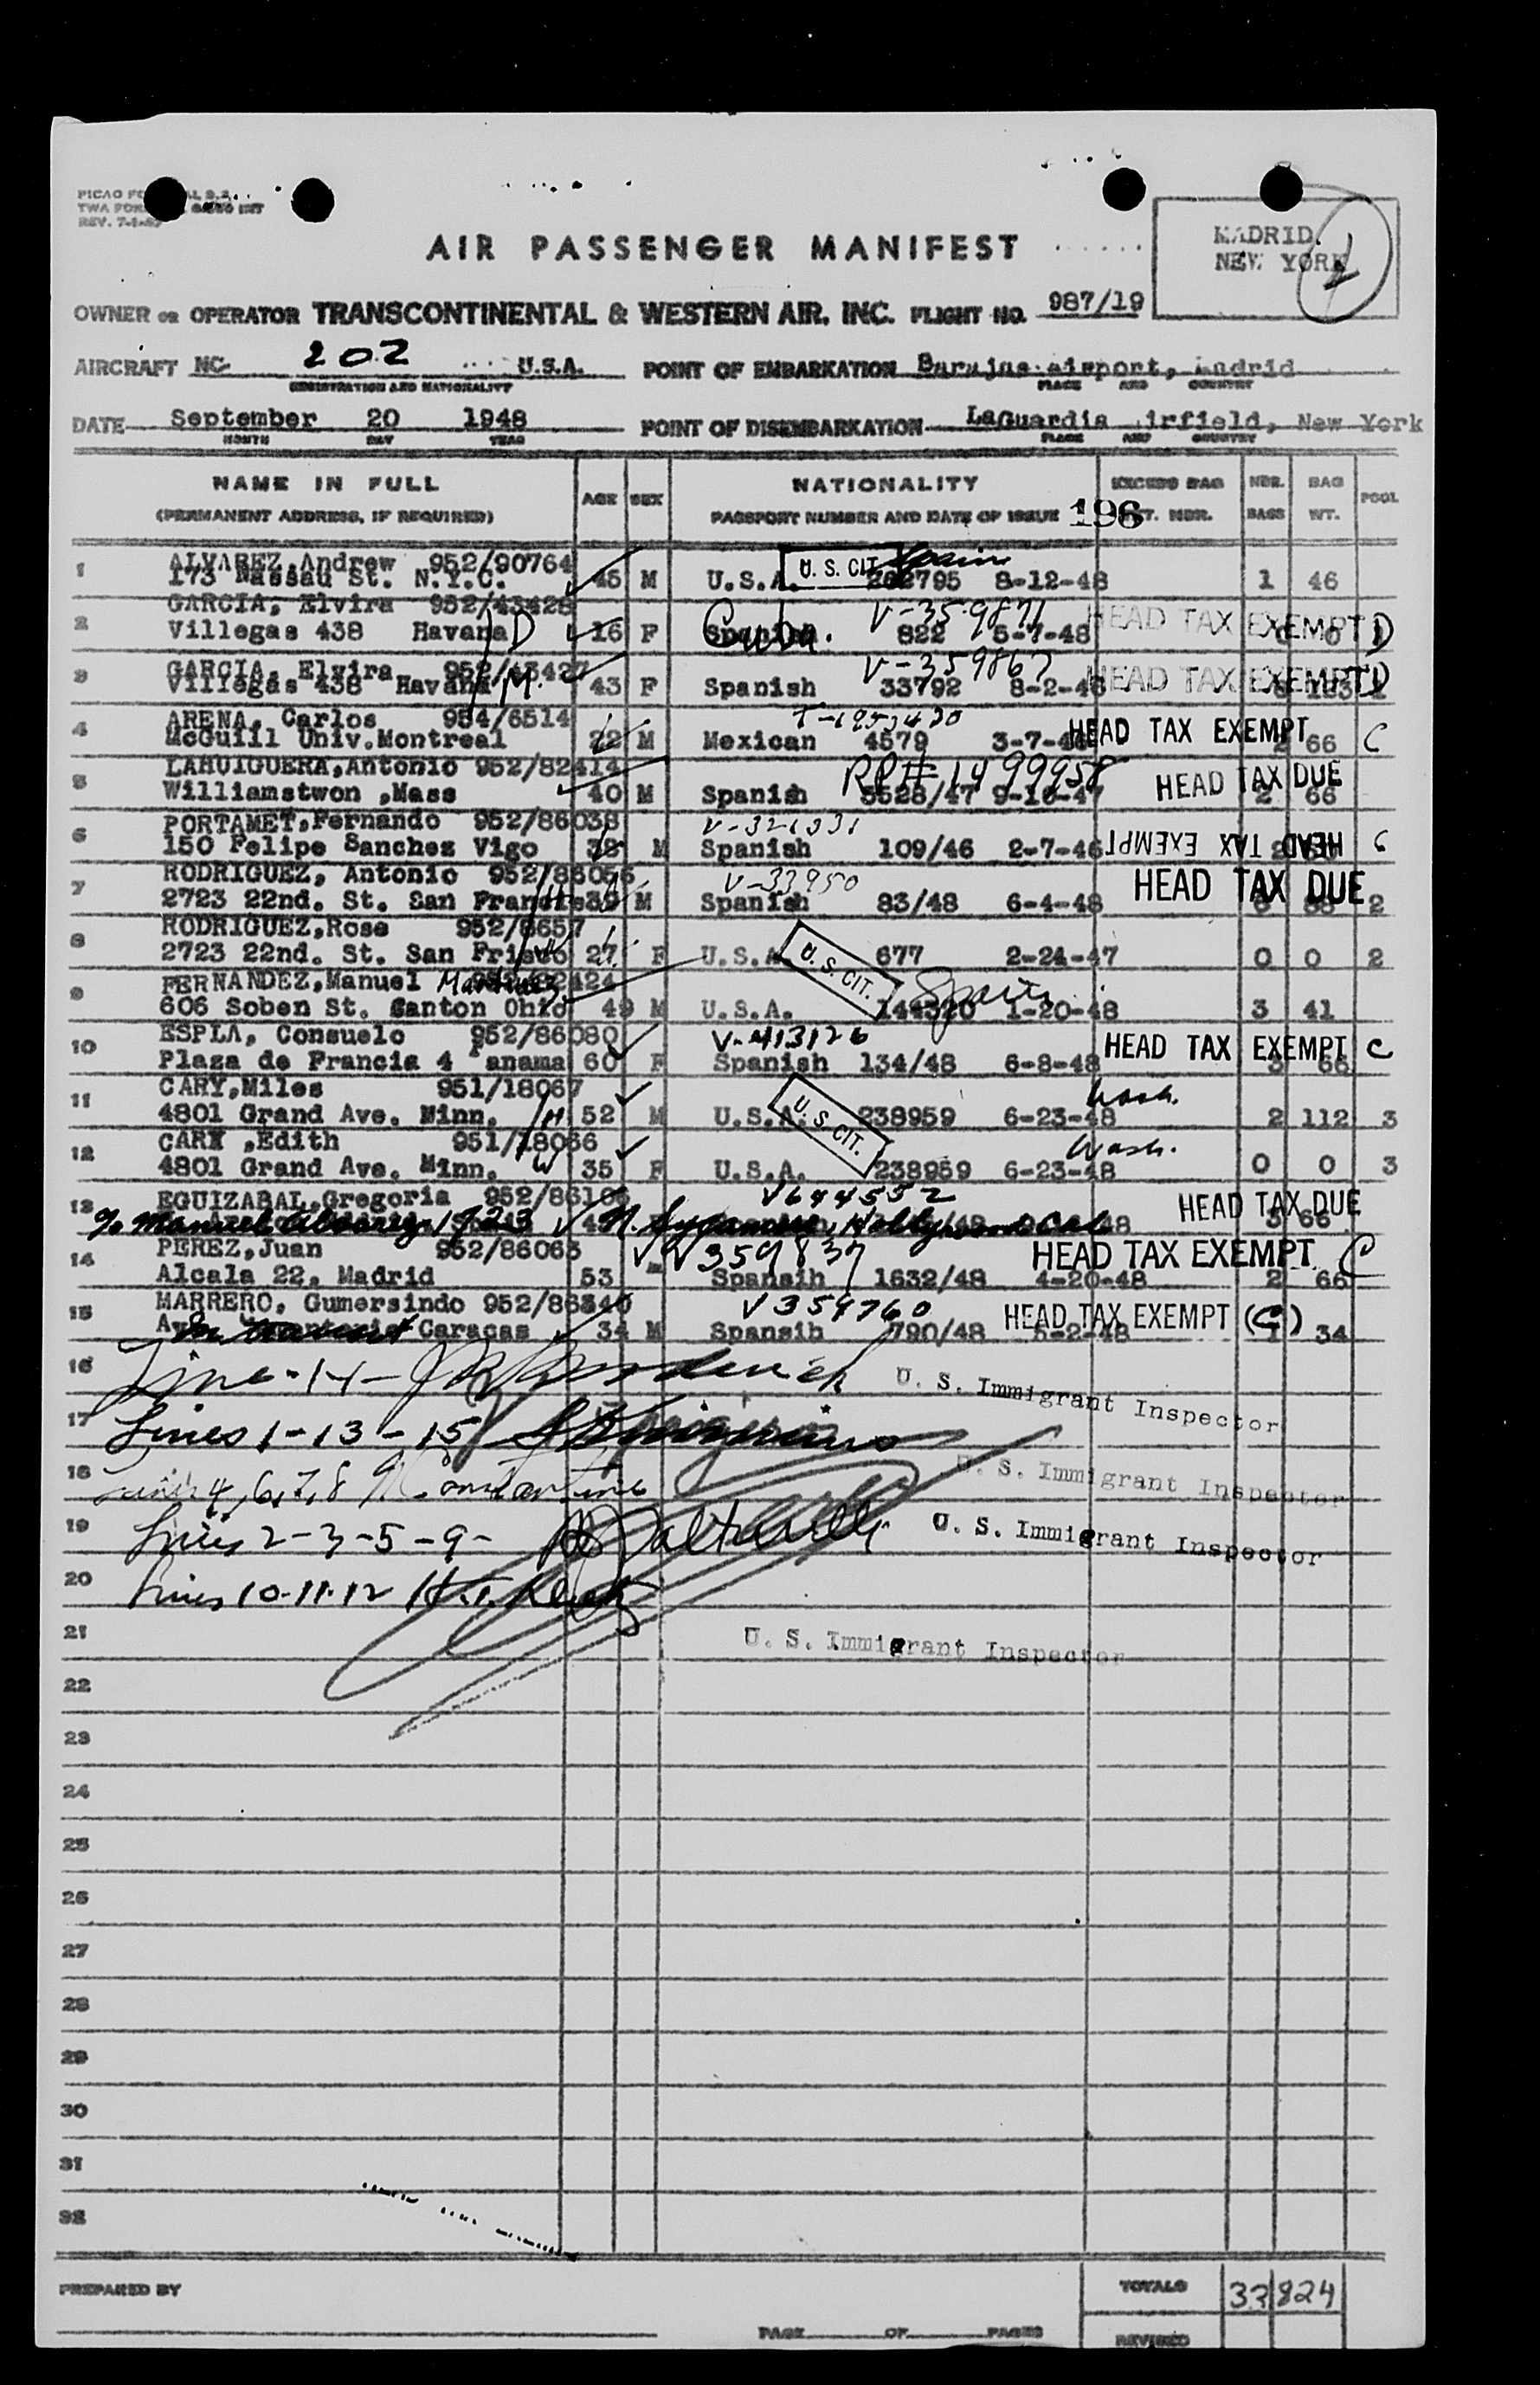 REV. 7-1-47
AIR PASSENGER MANIFEST
MADRID.
NEW YORK
OWNER OR OPERATOR TRANSCONTINENTAL & WESTERN AIR, INC. FLIGHT NO. 987/19
AIRCRAFT NC 202 U.S.A. POINT OF EMBARKATION Barajas airport, Madrid
REGISTRATION AND NATIONALITY PLACE AND COUNTRY
DATE September 20 1948 POINT OF DISEMBARKATION LaGuardia irfield, New York
MONTH DAY YEAR PLACE AND COUNTRY
NAME IN FULL AGE SEX NATIONALITY EXCESS BAG NBR. BAG POOL
(PERMANENT ADDRESS, IF REQUIRED) PASSPORT NUMBER AND DATE OF ISSUE 196 NBR. BAGS WT.
1 ALVAREZ, Andrew 952/90764 U. S. CIT. Spain
173 Nassau St. N.Y.C. 45 M U.S.A. 8-12-48 1 46
GARCIA, Elvira 952/43428 V-359871 HEAD TAX EXEMPT D
2 Villegas 438 Havana D 16 F Spanish Cuba. 822 5-7-48
3 GARCIA, Elvira 952/43427 V-359867 HEAD TAX EXEMPT D
Villegas 438 Havana M. 43 F Spanish 33792 8-2-46
4 ARENA, Carlos 954/6514 HEAD TAX EXEMPT C
McGuill Univ.Montreal 22 M Mexican 4579 66
5 LAHUIGUERA,Antonio 952/82414 RP# 1499958 HEAD TAX DUE
Williamstwon ,Mass 40 M Spanish 5528/47 2 66
6 PORTAMET,Fernando 952/86038 V-321331
150 Felipe Sanchez Vigo 38 M Spanish 109/46 2-7-46 HEAD TAX EXEMPT C
7 RODRIGUEZ, Antonio 952/86056 V-33950 HEAD TAX DUE
2723 22nd. St. San 39 M Spanish 83/48 6-4-48 2
8 RODRIGUEZ,Rose 952/8657
2723 22nd. St. San Frisco 27 F U.S.A. U. S. CIT. 677 2-24-47 0 0 2
9 FERNANDEZ,Manuel Martinez
606 Soben St. Canton Ohio 49 M U.S.A. 144320 Spain 1-20-48 3 41
10 ESPLA, Consuelo 952/86080 V-413126 HEAD TAX EXEMPT C
Plaza de Francia 4 Panama 60 F Spanish 134/48 6-8-48 3 66
11 CARY,Miles 951/18067 Wash.
4801 Grand Ave. Minn. H 52 M U.S.A. U. S. CIT. 238959 6-23-48 2 112 3
12 CARY ,Edith 951/18066 Wash.
4801 Grand Ave. Minn. W 35 F U.S.A. 238959 6-23-48 0 0 3
13 EGUIZABAL,Gregoria V644552 HEAD TAX DUE
% Manuel Alvarez, 1723 N. Sycamore, Hollywood Cal 3 66
14 PEREZ,Juan 952/86063 V359837 HEAD TAX EXEMPT C
Alcala 22, Madrid 53 Spansih 1632/48 4-20-48 2 66
15 MARRERO, Gumersindo 952/86340 V359760 HEAD TAX EXEMPT (C)
Caracas 34 M Spansih 790/48 5-2-48 1 34
16 Line-14- U. S. Immigrant Inspector
17 Lines 1-13-15
18 4,6,7,8 U. S. Immigrant Inspector
19 Lines 2-3-5-9- U. S. Immigrant Inspector
20 Lines 10-11-12
21 U. S. Immigrant Inspector
22
23
24
25
26
27
28
29
30
31
32
PREPARED BY TOTALS 33 824
PAGE OF PAGES REVISED